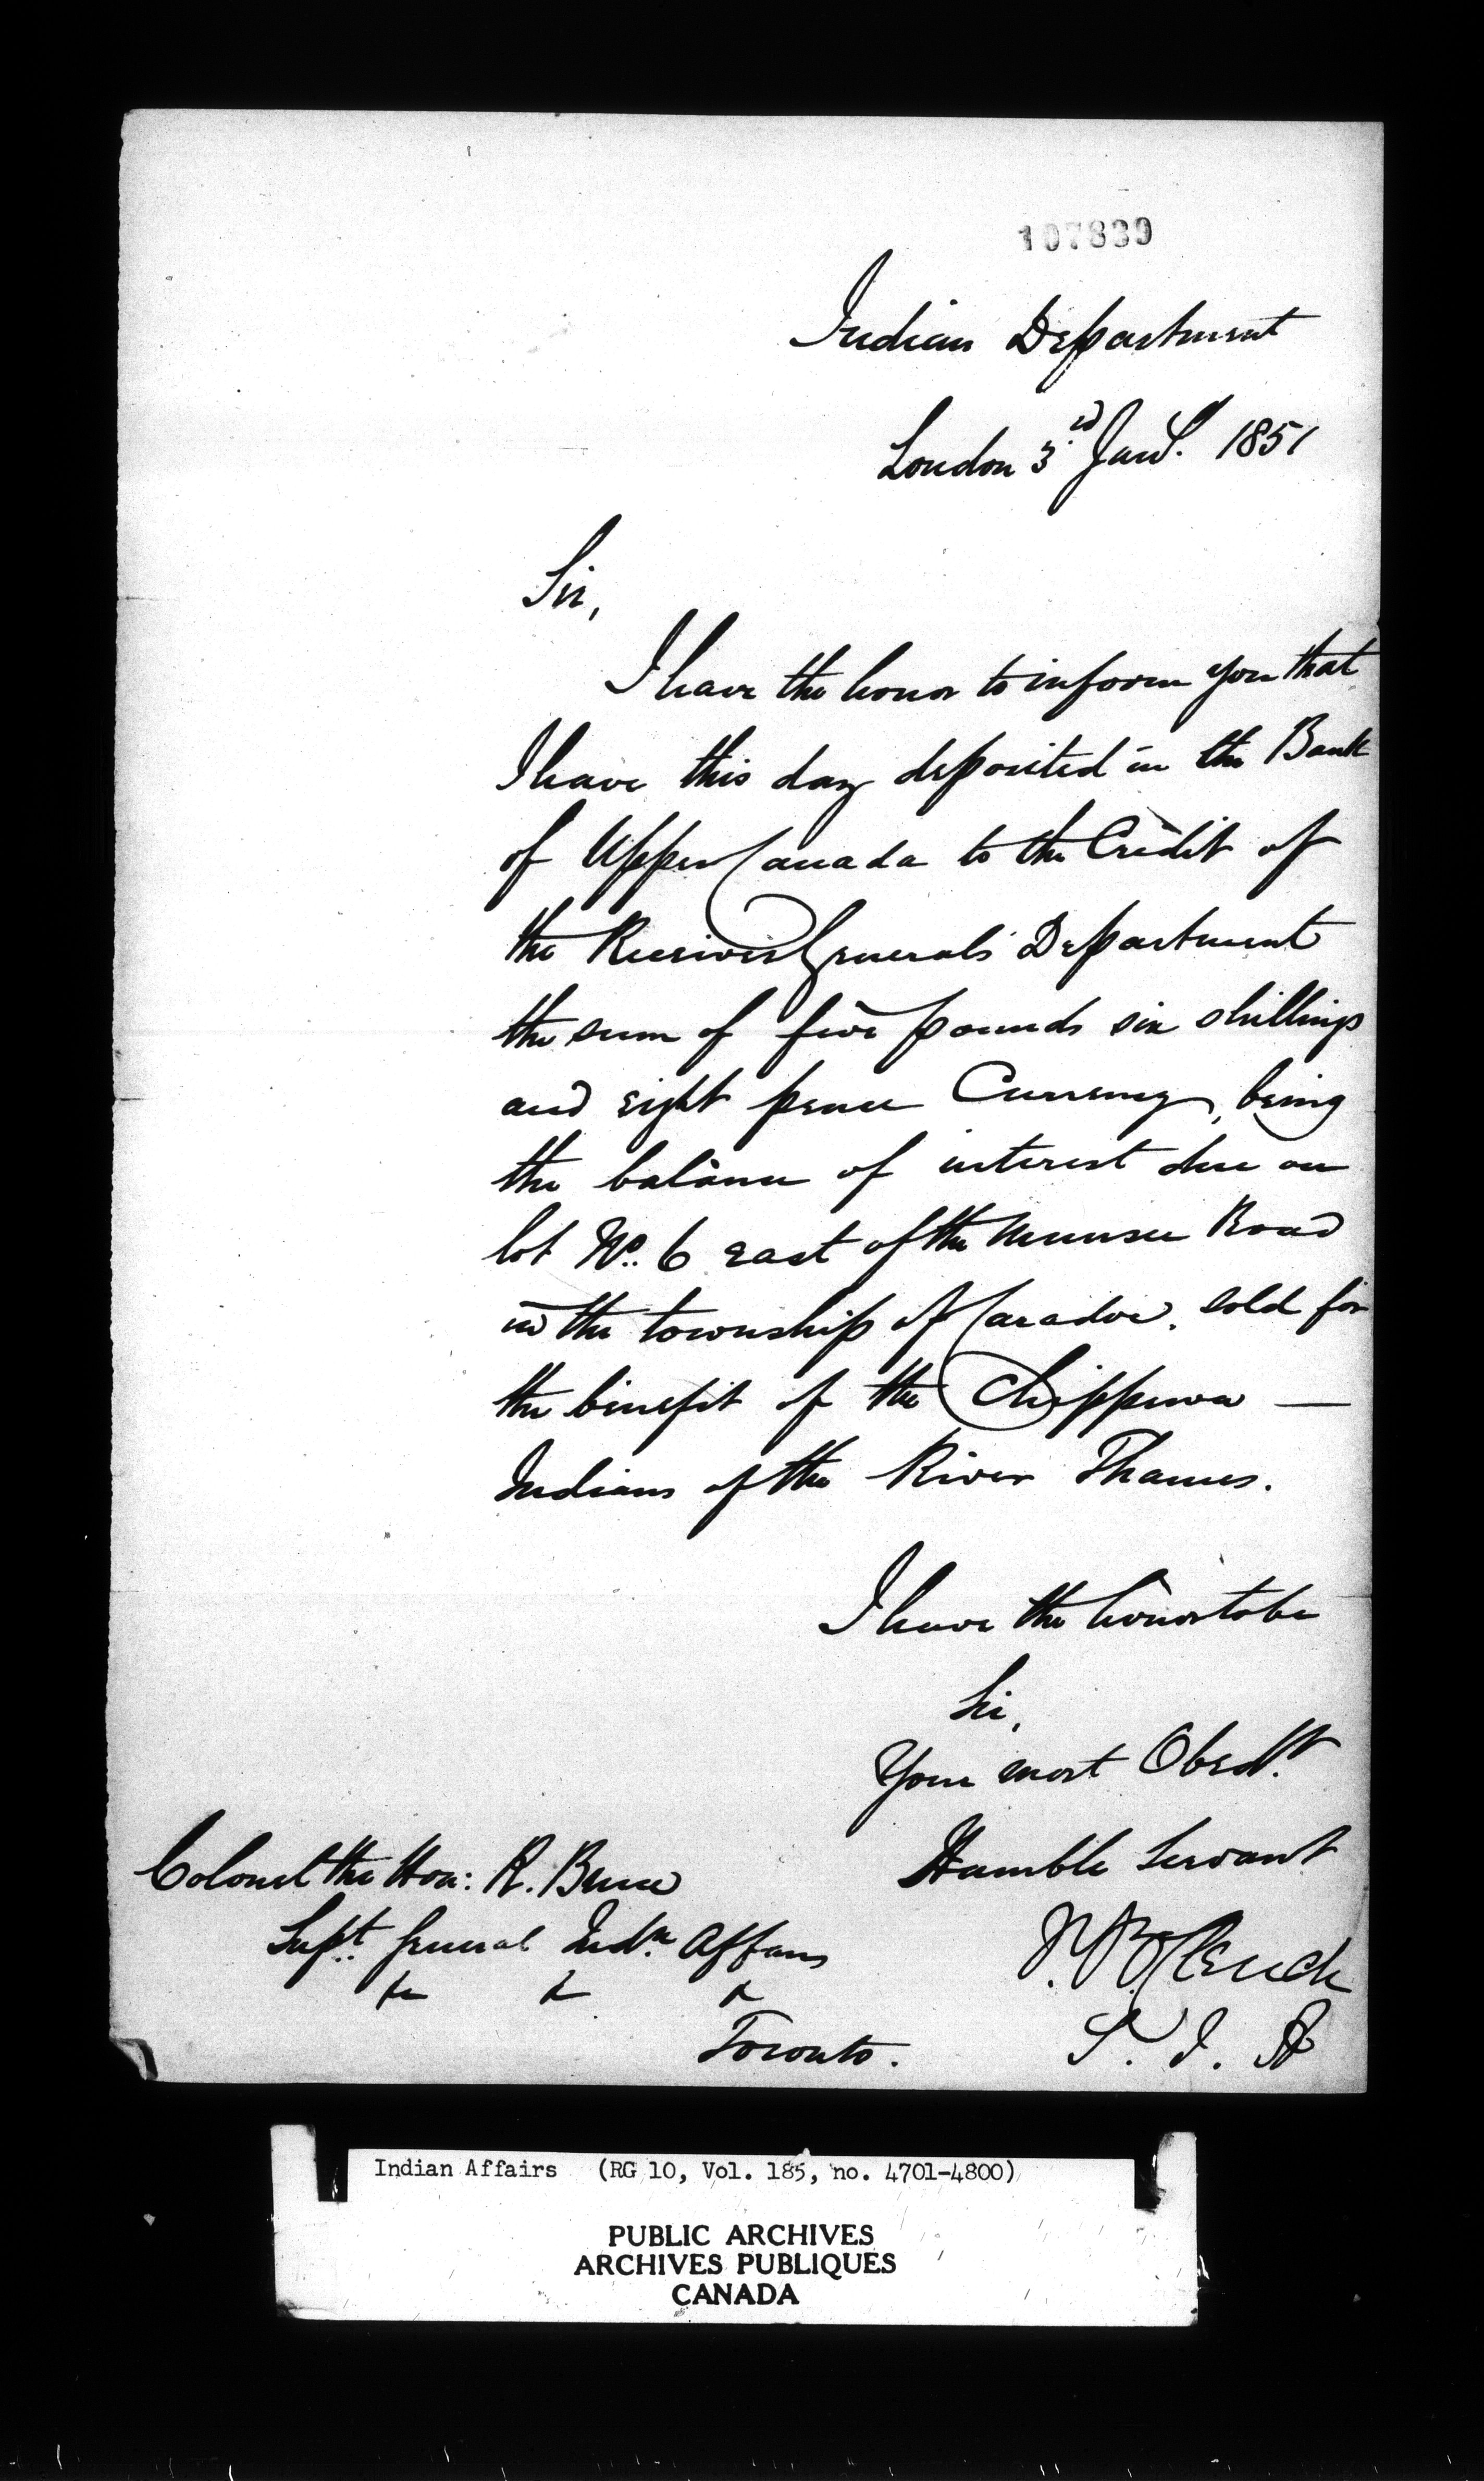 107839
Indian Department
London 3rd Jany. 1851
Sir,
I have the honor to inform you that
I have this day deposited in the Bank
of Upper Canada to the Credit of
the Receiver Generals Department
the sum of five pounds six shillings
and eight pence Currency, being
the balance of interest due on
lot No. 6 east of the Munsee Road
in the township of Caradoc. sold for
the benefit of the Chippewa —
Indians of the River Thames.
I have the honor to be
Sir,
Your most Obedt.
Humble Servant
J. B. Clench
S. I. A
Colonel the Hon: R. Bruce
Supt. General Indn. Affairs
&c &c &c
Toronto.
Indian Affairs (RG 10, Vol. 185, no. 4701-4800)
PUBLIC ARCHIVES
ARCHIVES PUBLIQUES
CANADA